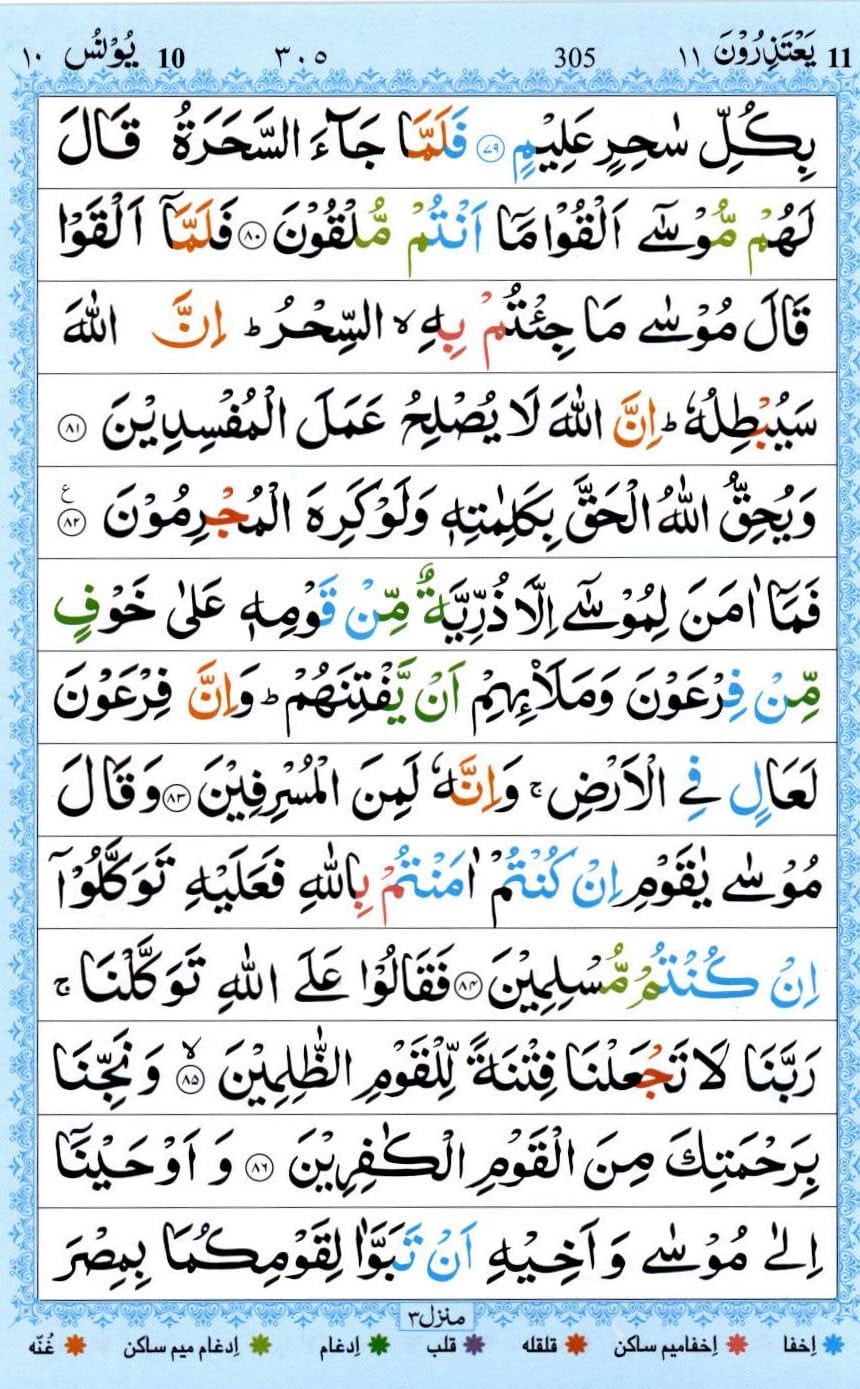 11 يَعْتَذِرُوْنَ ١١ 305 ٣٠٥ 10 يُوْنُس ١٠
بِكُلِّ سٰحِرٍ عَلِيْمٍ ﴿٧٩﴾ فَلَمَّا جَآءَ السَّحَرَةُ قَالَ
لَهُمْ مُّوْسٰٓى اَلْقُوْا مَاۤ اَنْتُمْ مُّلْقُوْنَ ﴿٨٠﴾ فَلَمَّاۤ اَلْقَوْا
قَالَ مُوْسٰى مَا جِئْتُمْ بِهِ ۙ السِّحْرُ ؕ اِنَّ اللّٰهَ
سَيُبْطِلُهٗ ؕ اِنَّ اللّٰهَ لَا يُصْلِحُ عَمَلَ الْمُفْسِدِيْنَ ﴿٨١﴾
وَيُحِقُّ اللّٰهُ الْحَقَّ بِكَلِمٰتِهٖ وَلَوْ كَرِهَ الْمُجْرِمُوْنَ ﴿٨٢﴾ ع
فَمَاۤ اٰمَنَ لِمُوْسٰٓى اِلَّا ذُرِّيَّةٌ مِّنْ قَوْمِهٖ عَلٰى خَوْفٍ
مِّنْ فِرْعَوْنَ وَمَلَا۟ئِهِمْ اَنْ يَّفْتِنَهُمْ ؕ وَاِنَّ فِرْعَوْنَ
لَعَالٍ فِى الْاَرْضِ ۚ وَاِنَّهٗ لَمِنَ الْمُسْرِفِيْنَ ﴿٨٣﴾ وَقَالَ
مُوْسٰى يٰقَوْمِ اِنْ كُنْتُمْ اٰمَنْتُمْ بِاللّٰهِ فَعَلَيْهِ تَوَكَّلُوْۤا
اِنْ كُنْتُمْ مُّسْلِمِيْنَ ﴿٨٤﴾ فَقَالُوْا عَلَى اللّٰهِ تَوَكَّلْنَا ۚ
رَبَّنَا لَا تَجْعَلْنَا فِتْنَةً لِّلْقَوْمِ الظّٰلِمِيْنَ ۙ﴿٨٥﴾ وَنَجِّنَا
بِرَحْمَتِكَ مِنَ الْقَوْمِ الْكٰفِرِيْنَ ﴿٨٦﴾ وَاَوْحَيْنَاۤ
اِلٰى مُوْسٰى وَاَخِيْهِ اَنْ تَبَوَّاٰ لِقَوْمِكُمَا بِمِصْرَ
منزل٣
اِخفا اِخفامیم ساکن قلقله قلب اِدغام اِدغام میم ساکن غُنّه